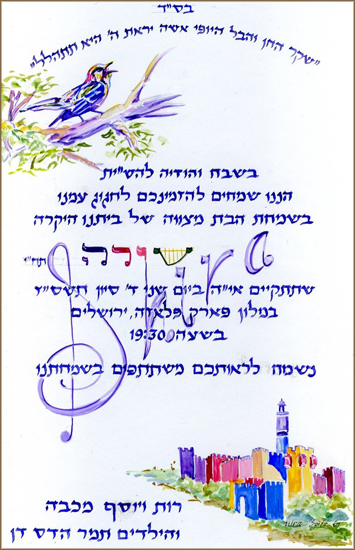 בס"ד
"שקר החן והבל היופי אשה יראת ה' היא תתהלל"
בשבח והודיה להש"ית
הננו שמחים להזמינכם לחגוג עמנו
בשמחת הבת מצווה של ביתנו היקרה
תח"י
שתתקיים אי"ה ביום שני ד' סיון תשס"ד
במלון פארק פלאזה, ירושלים
בשעה 19:30
נשמח לראותכם משתתפים בשמחתנו
רות ויוסף מכבה
והילדים תמר הדס דן